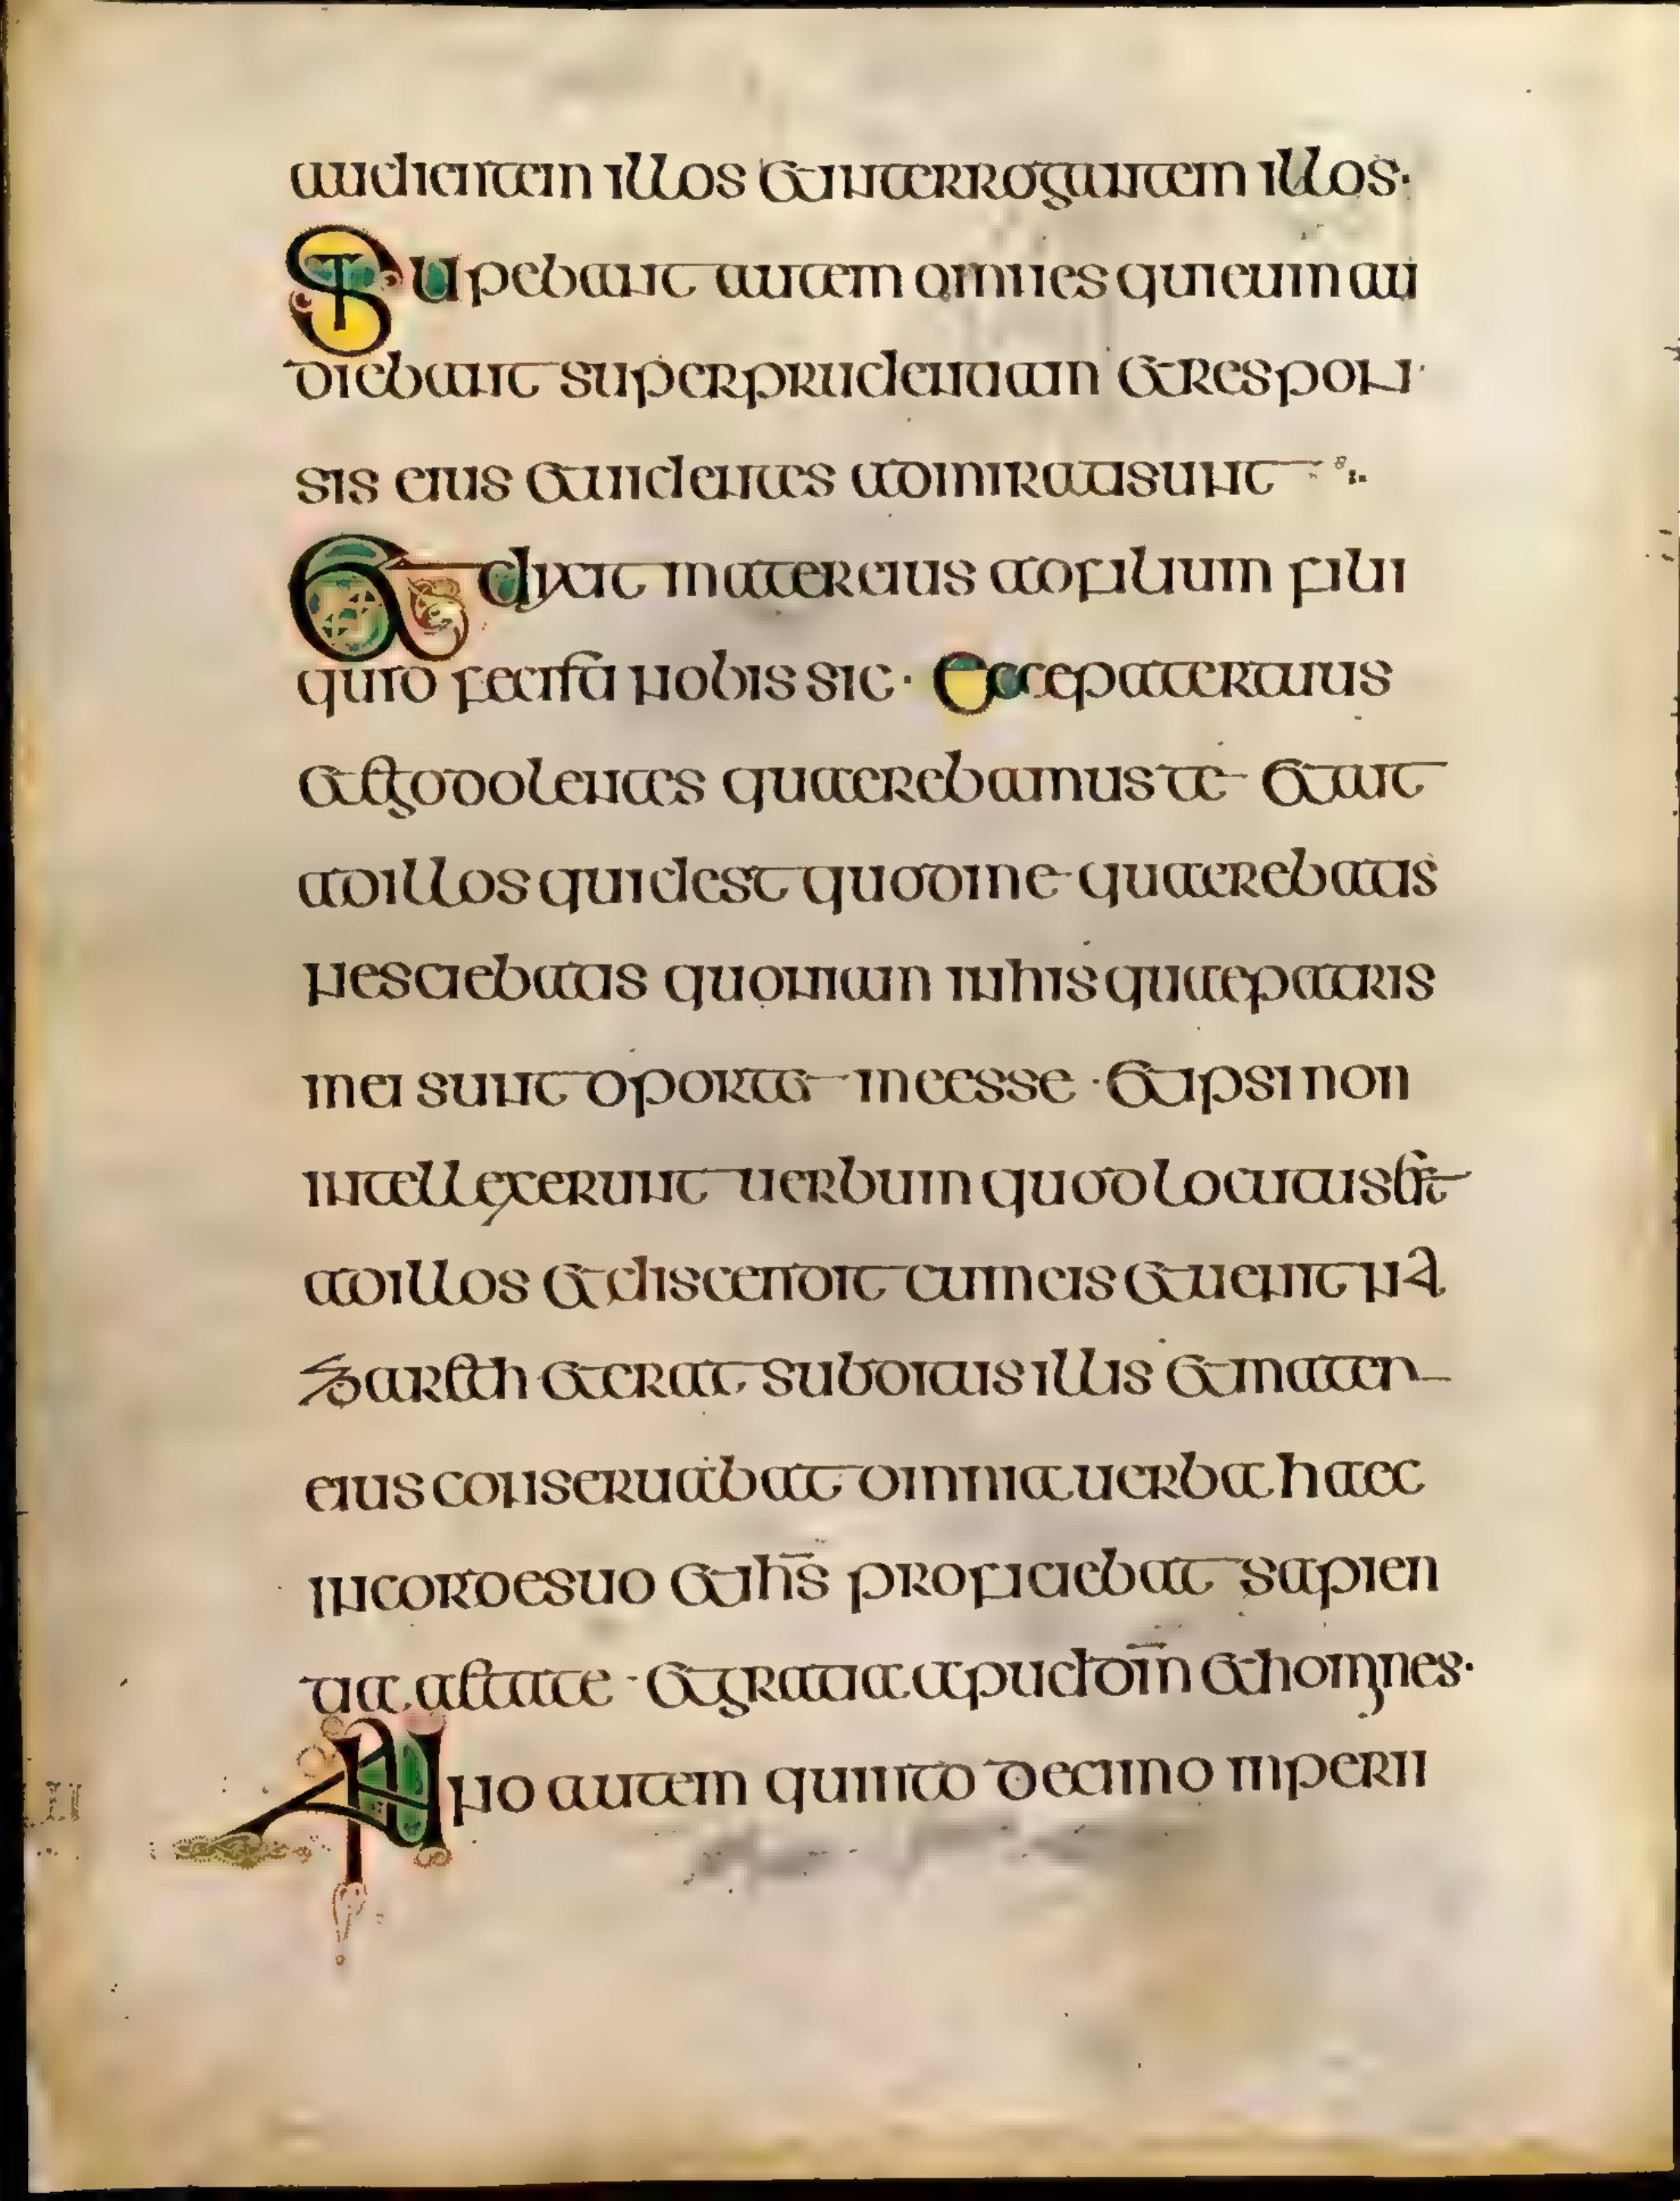 audientem illos & interrogantem illos·
Stupebant autem omnes qui eum au
diebant super prudentiam & respon
sis eius & uidentes admirati sunt
& dixit mater eius ad filium fili
quid fecisti nobis sic · Ecce pater tuus
& ego dolentes quaerebamus te & ait
ad illos quid est quod me quaerebatis
nesciebatis quoniam in his quae patris
mei sunt oportet me esse · & ipsi non
intellexerunt uerbum quod locutus est
ad illos & discendit cum eis & uenit na
zareth & erat subditus illis & mater
eius conseruabat omnia uerba haec
in corde suo & ihs̄ proficiebat sapien
tia aetate · & gratia apud dom̄ & homines·
Anno autem quinto decimo inperii